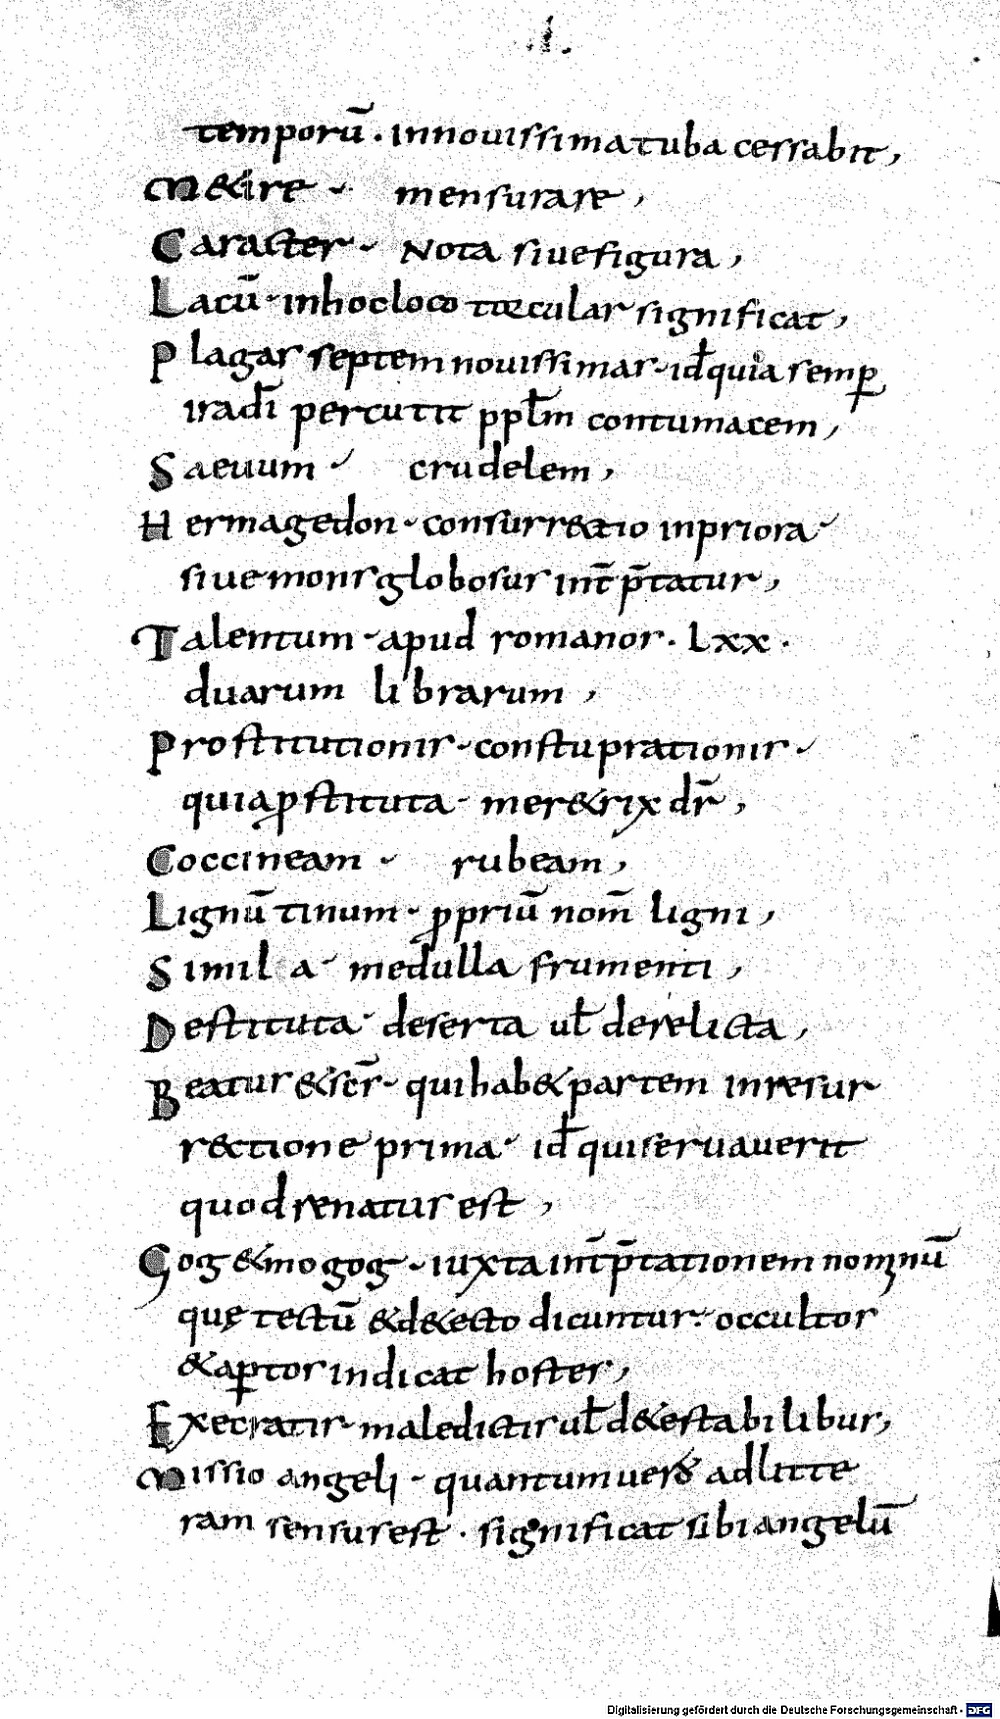 .I.
temporū. innouissima tuba cessabit,
M&ire mensurare,
Caracter Nota siue figura,
Lacū inhocloco torcular significat,
Plagas septem novissimas id̄ quia semꝑ
ira dī percutit ppl̄m contumacem,
Saeuum crudelem,
Hermagedon consurr&tio inpriora
siue mons globosus int̄p̄tatur,
Talentum apud romanos. Lxx.
duarum librarum,
Prostitutionis constuprationis
quia ꝓstituta mer&rix dr̄,
Coccineam rubeam,
Lignū tinum ꝓpriū nom̄ ligni,
Simila medulla frumenti,
Destituta deserta ul̄ derelicta,
Beatus & scs̄ qui hab& partem inresur
r&ctione prima id̄ qui seruauerit
quod renatus est,
Gog & mogog iuxta int̄p̄tationem nominū
quę tectū & det&cto dicuntur occultos
& aꝑtos indicat hostes,
Execratis maledictis ul̄ det&estabilibus,
Missio angeli quantum uero adlitte
ram sensus est. significat sibi angelū
Digitalisierung gefördert durch die Deutsche Forschungsgemeinschaft - DFG